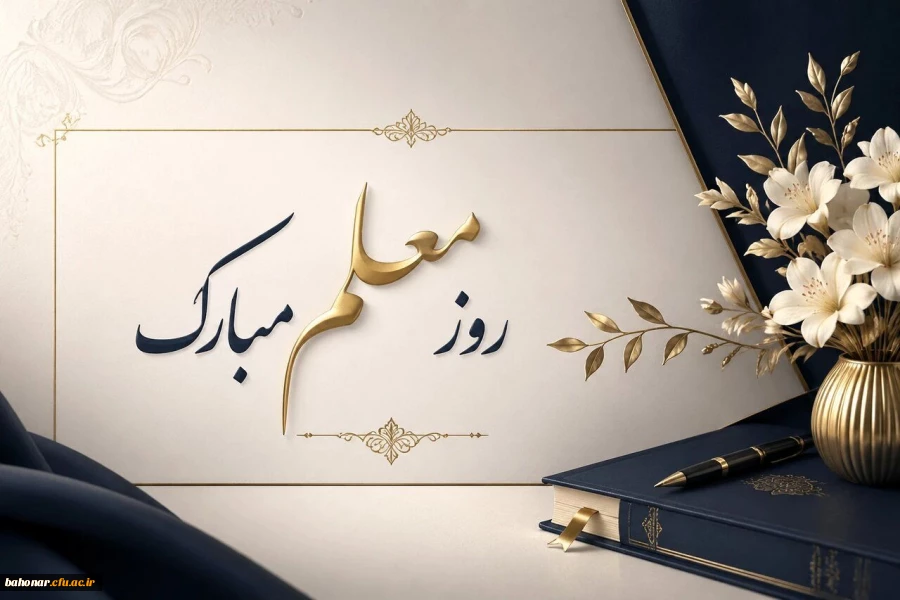 روز معلم مبارک
bahonar.cfu.ac.ir